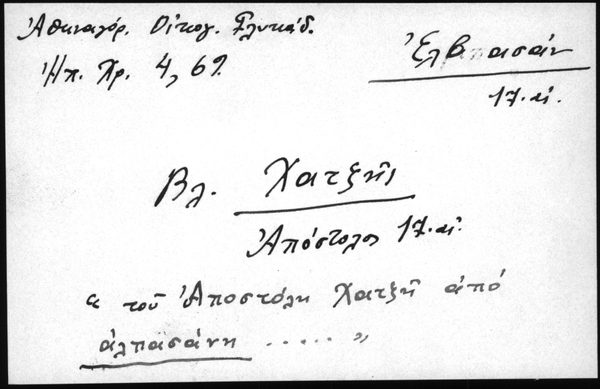 Ἀθηναγόρ. Οἰκογ. Γλυκάδ.
Ἠπ. Χρ. 4, 69.
Ἐλβασάν
17. αἰ.
Βλ. Χατζῆς
Ἀπόστολος 17. αἰ.
« τοῦ Ἀποστόλη Χατζῆ ἀπό
ἀλπασάνη ..... »